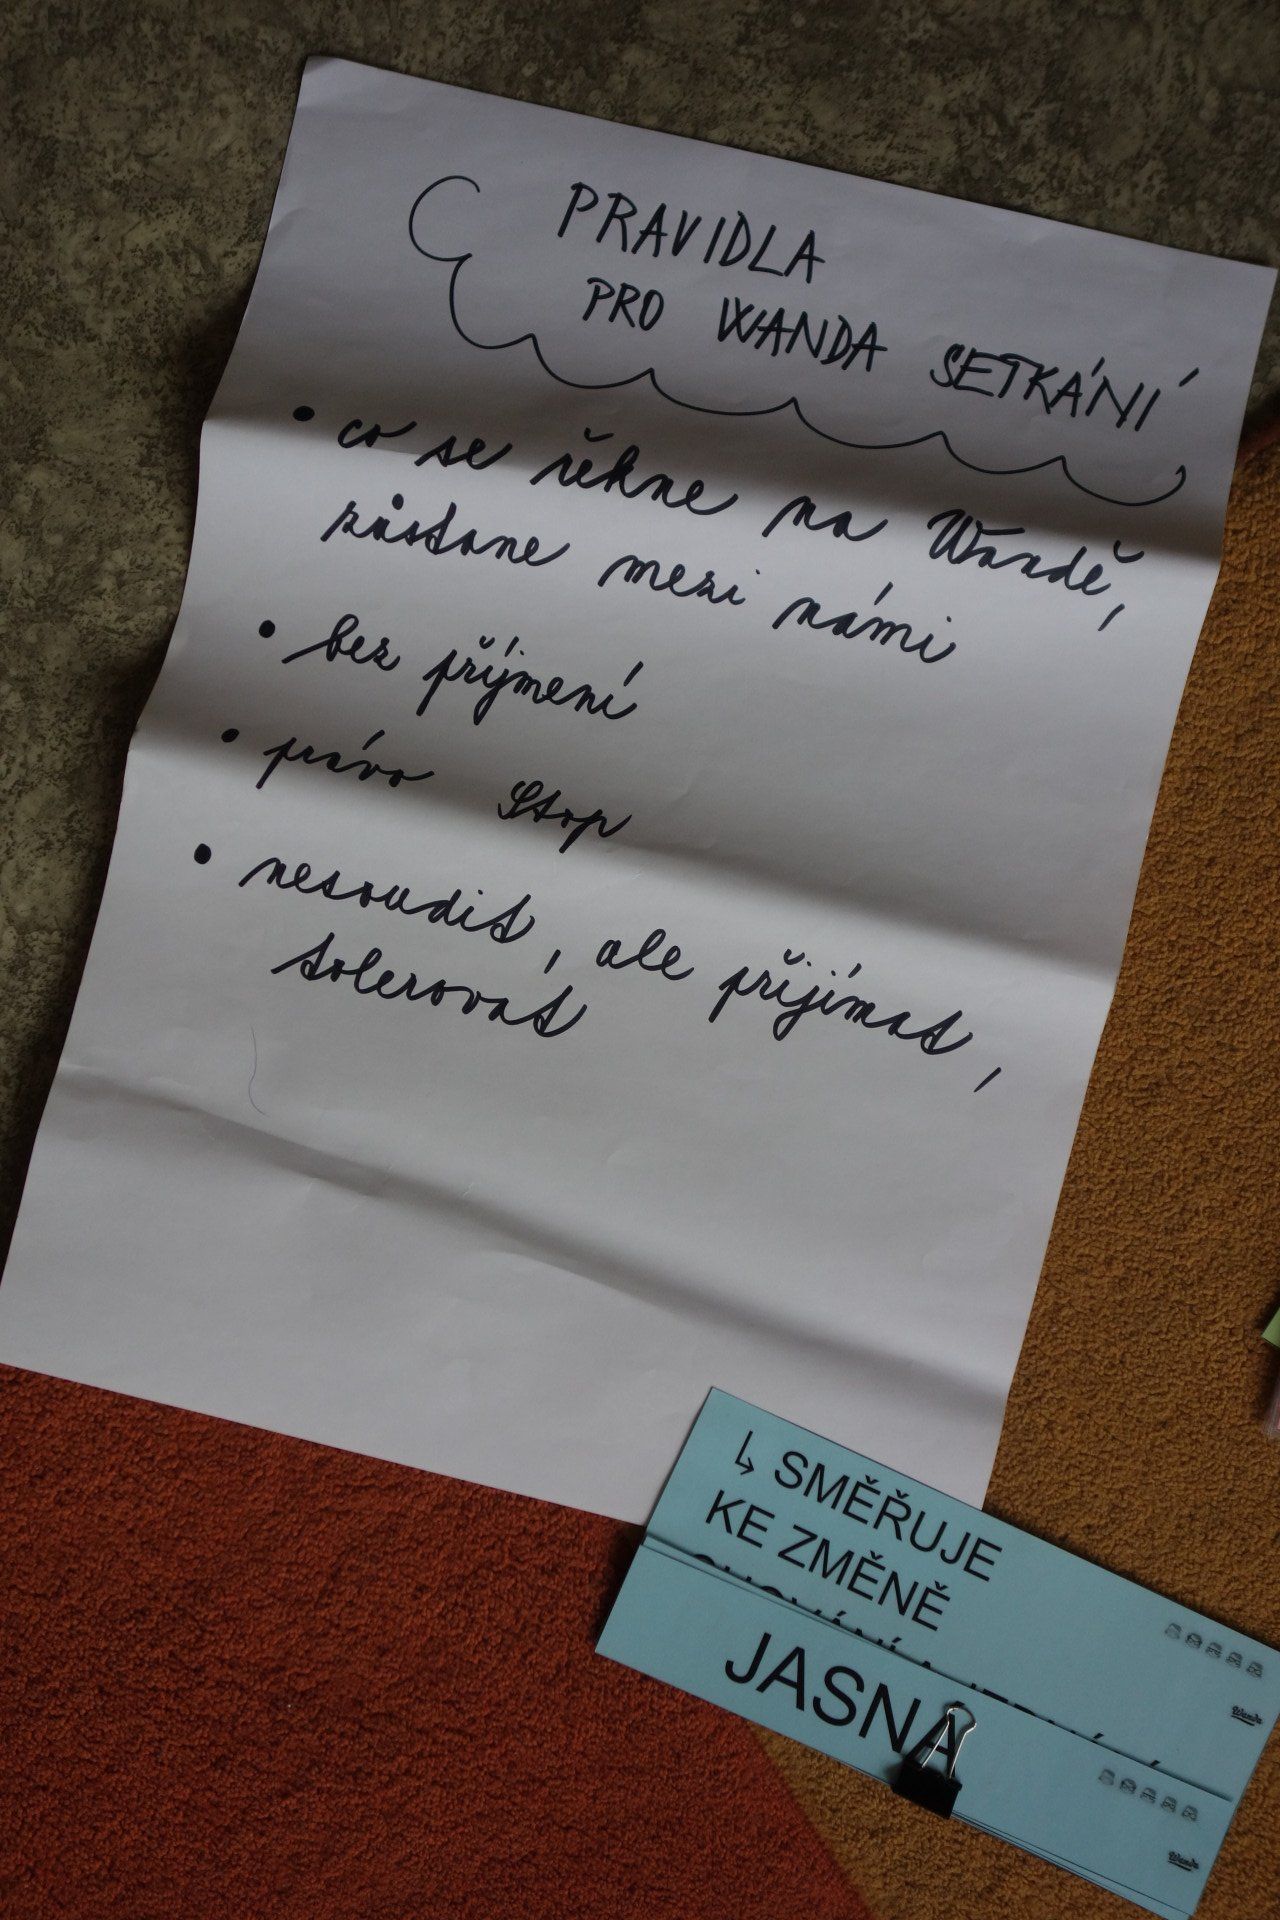 PRAVIDLA
PRO WANDA SETKÁNÍ
• co se řekne na Wandě,
zůstane mezi námi
• bez příjmení
• právo Stop
• nesoudit, ale přijímat,
tolerovat
↳ SMĚŘUJE
KE ZMĚNĚ
Wanda
JASNÁ
Wanda